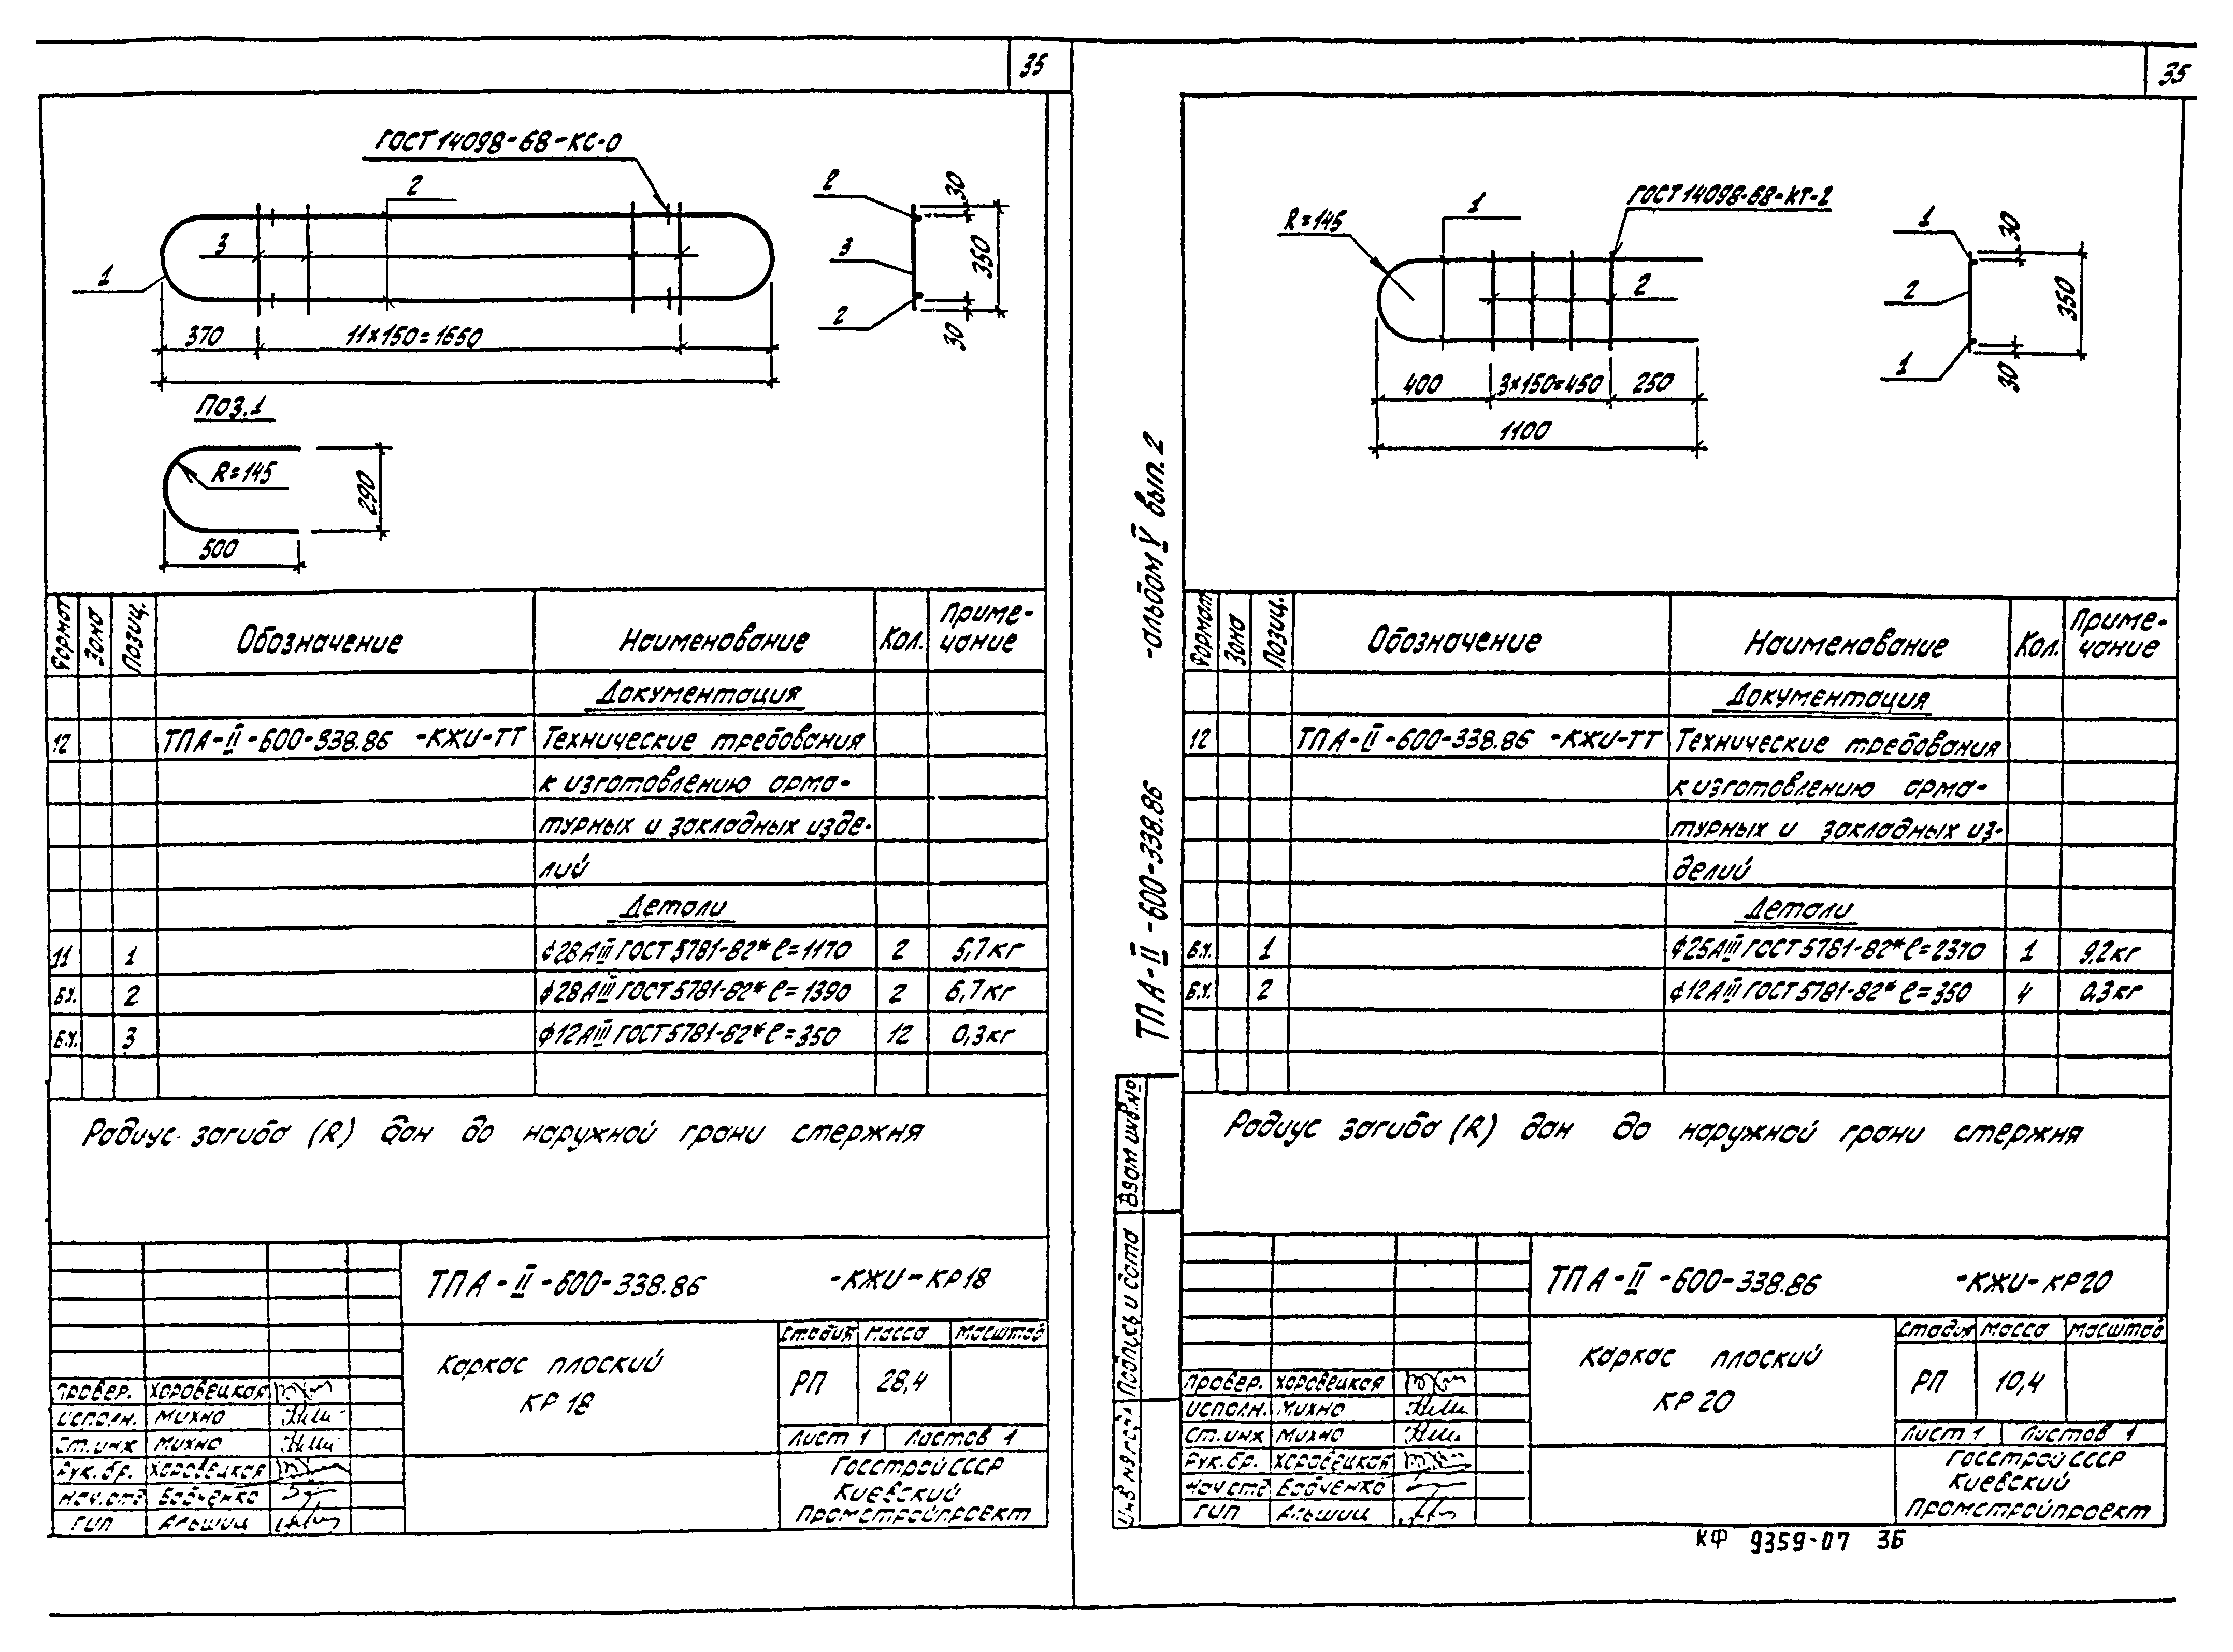 35
ГОСТ 14098-68-КС-О
2
3
1
370
11×150=1650
2
3
2
30
350
30
ПОЗ.1
R=145
290
500
Формат
Зона
Позиц.
Обозначение
Наименование
Кол.
Приме-
чание
Документация
12 ТПА-II-600-338.86 -КЖИ-ТТ Технические требования
к изготовлению арма-
турных и закладных изде-
лий
Детали
11 1 ф28АIII ГОСТ 5781-82* ℓ=1170 2 5,7кг
Б.Ч. 2 ф28АIII ГОСТ 5781-82* ℓ=1390 2 6,7кг
Б.Ч. 3 ф12АIII ГОСТ 5781-82* ℓ=350 12 0,3кг
Радиус загиба (R) дан до наружной грани стержня
ТПА-II-600-338.86 -КЖИ-КР18
Каркас плоский
КР 18
Стадия Масса Масштаб
РП 28,4
Лист 1 Листов 1
Госстрой СССР
Киевский
Промстройпроект
Провер. Хоровецкая
Исполн. Михно
Ст.инж Михно
Рук.бр. Хоровецкая
Нач.отд Бабченко
ГИП Альшиц
35
R=145
1
ГОСТ 14098-68-КТ-2
2
400
3×150=450
250
1100
1
2
1
30
350
30
ТПА-II-600-338.86 -альбом V вып. 2
Формат
Зона
Позиц.
Обозначение
Наименование
Кол.
Приме-
чание
Документация
12 ТПА-II-600-338.86 -КЖИ-ТТ Технические требования
к изготовлению арма-
турных и закладных из-
делий
Детали
Б.Ч. 1 ф25АIII ГОСТ 5781-82* ℓ=2370 1 9,2кг
Б.Ч. 2 ф12АIII ГОСТ 5781-82* ℓ=350 4 0,3кг
Радиус загиба (R) дан до наружной грани стержня
Взам инв.№
Подпись и дата
Инв № подл
ТПА-II-600-338.86 -КЖИ-КР20
Каркас плоский
КР 20
Стадия Масса Масштаб
РП 10,4
Лист 1 Листов 1
Госстрой СССР
Киевский
Промстройпроект
Провер. Хоровецкая
Исполн. Михно
Ст.инж Михно
Рук.бр. Хоровецкая
Нач отд Бабченко
ГИП Альшиц
КФ 9359-07 36